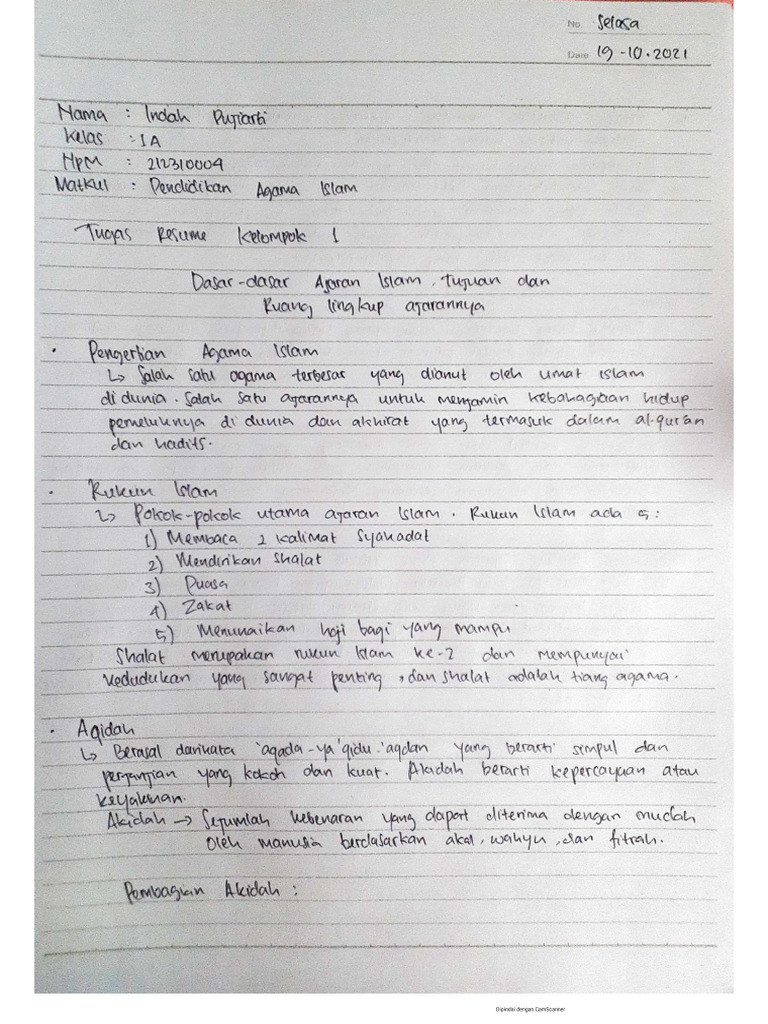 No. Selasa
Date 19-10-2021
Nama : Indah Pujiarti
Kelas : 1A
NPM : 212310004
Matkul : Pendidikan Agama Islam
Tugas Resume Kelompok 1
Dasar-dasar Ajaran Islam, Tujuan dan
Ruang lingkup ajarannya
• Pengertian Agama Islam
↳ Salah satu agama terbesar yang dianut oleh umat islam
di dunia. Salah satu ajarannya untuk menjamin kebahagiaan hidup
pemeluknya di dunia dan akhirat yang termasuk dalam al-qur'an
dan hadits.
• Rukun Islam
↳ Pokok-pokok utama ajaran Islam. Rukun Islam ada 5:
1) Membaca 2 kalimat Syahadat
2) Mendirikan Shalat
3) Puasa
4) Zakat
5) Menunaikan haji bagi yang mampu
Shalat merupakan rukun Islam ke-2 dan mempunyai
kedudukan yang sangat penting, dan shalat adalah tiang agama.
• Aqidah
↳ Berasal darikata 'aqada-ya'qidu-'aqdan yang berarti simpul dan
perjanjian yang kokoh dan kuat. Akidah berarti kepercayaan atau
keyakinan.
Akidah → Sejumlah kebenaran yang dapat diterima dengan mudah
oleh manusia berdasarkan akal, wahyu, dan fitrah.
Pembagian Akidah :
Dipindai dengan CamScanner